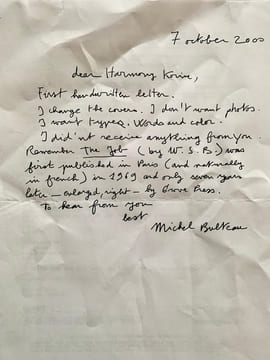 7 october 2000
dear Harmony Korine,
First handwritten letter.
I change the covers. I don't want photos.
I want types. Words and color.
I did'nt receive anything from you.
Remember The Job (by W. S. B.) was
first published in Paris (and naturally
in french) in 1969 and only seven years
later – enlarged, right – by Grove Press.
To hear from you
best
Michel Bulteau